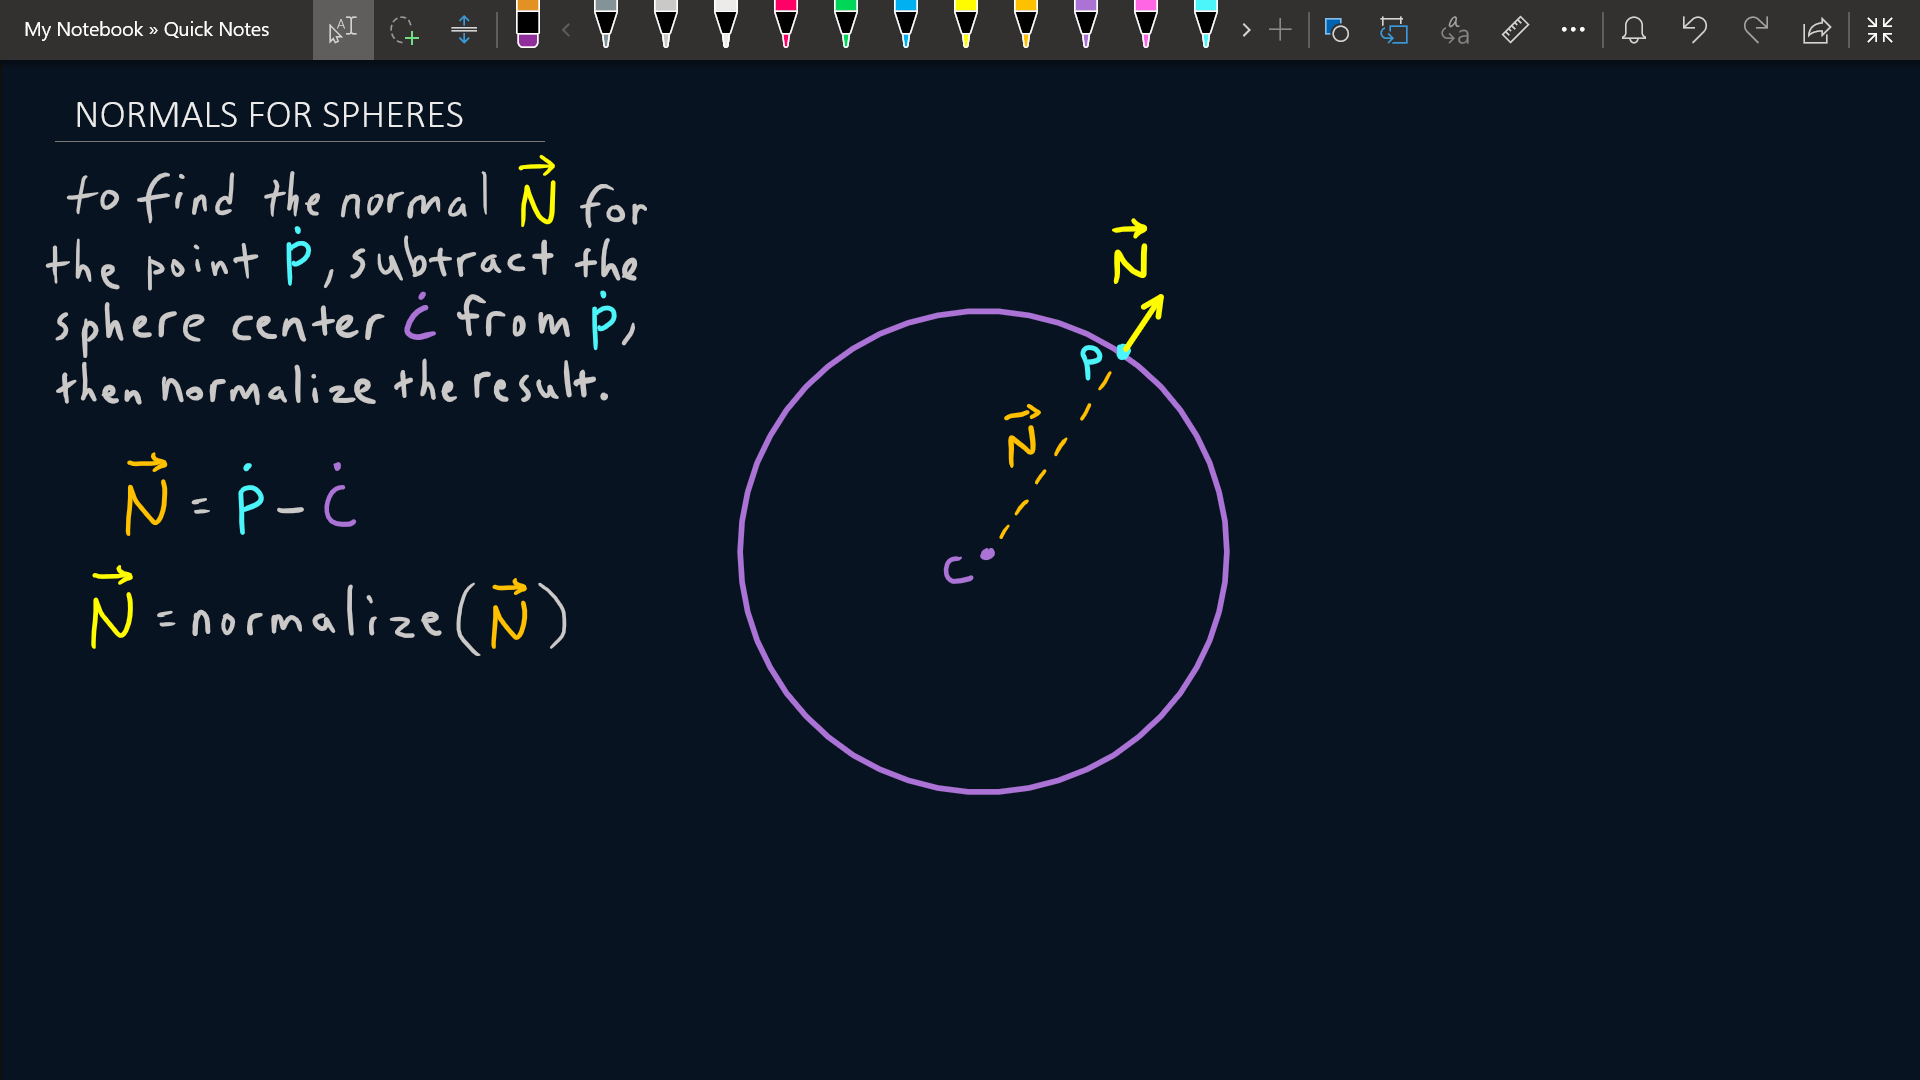 My Notebook » Quick Notes
NORMALS FOR SPHERES
to find the normal N⃗ for
the point Ṗ, subtract the
sphere center Ċ from Ṗ,
then normalize the result.
N⃗ = Ṗ - Ċ
N⃗ = normalize(N⃗)
N⃗
P
N⃗
C